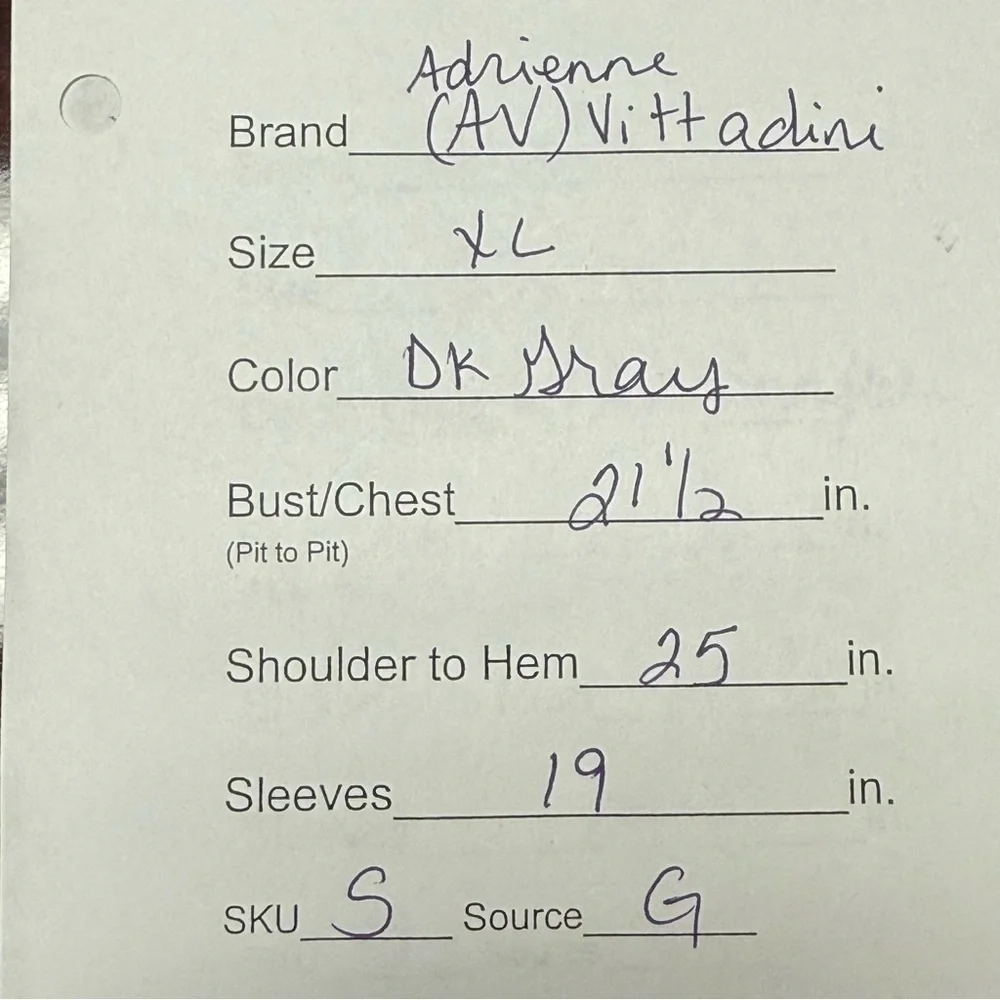 Adrienne
Brand (AV) Vittadini
Size XL
Color DK Gray
Bust/Chest 21 1/2 in.
(Pit to Pit)
Shoulder to Hem 25 in.
Sleeves 19 in.
SKU S Source G